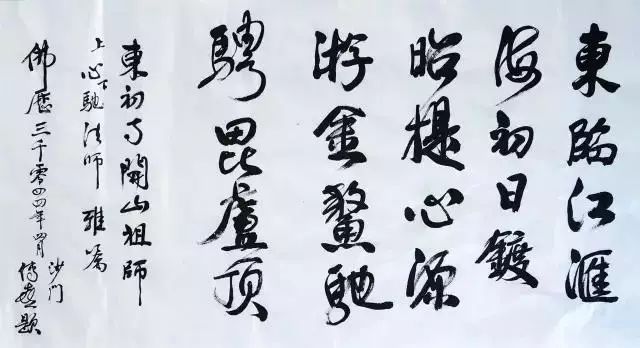 東臨江滙
海初日鍍
昭提心源
游金鰲馳
騁毘盧頂
東初寺開山祖師
上心下馳法師 雅
佛歷三千零四四年四月
沙门
传喜题